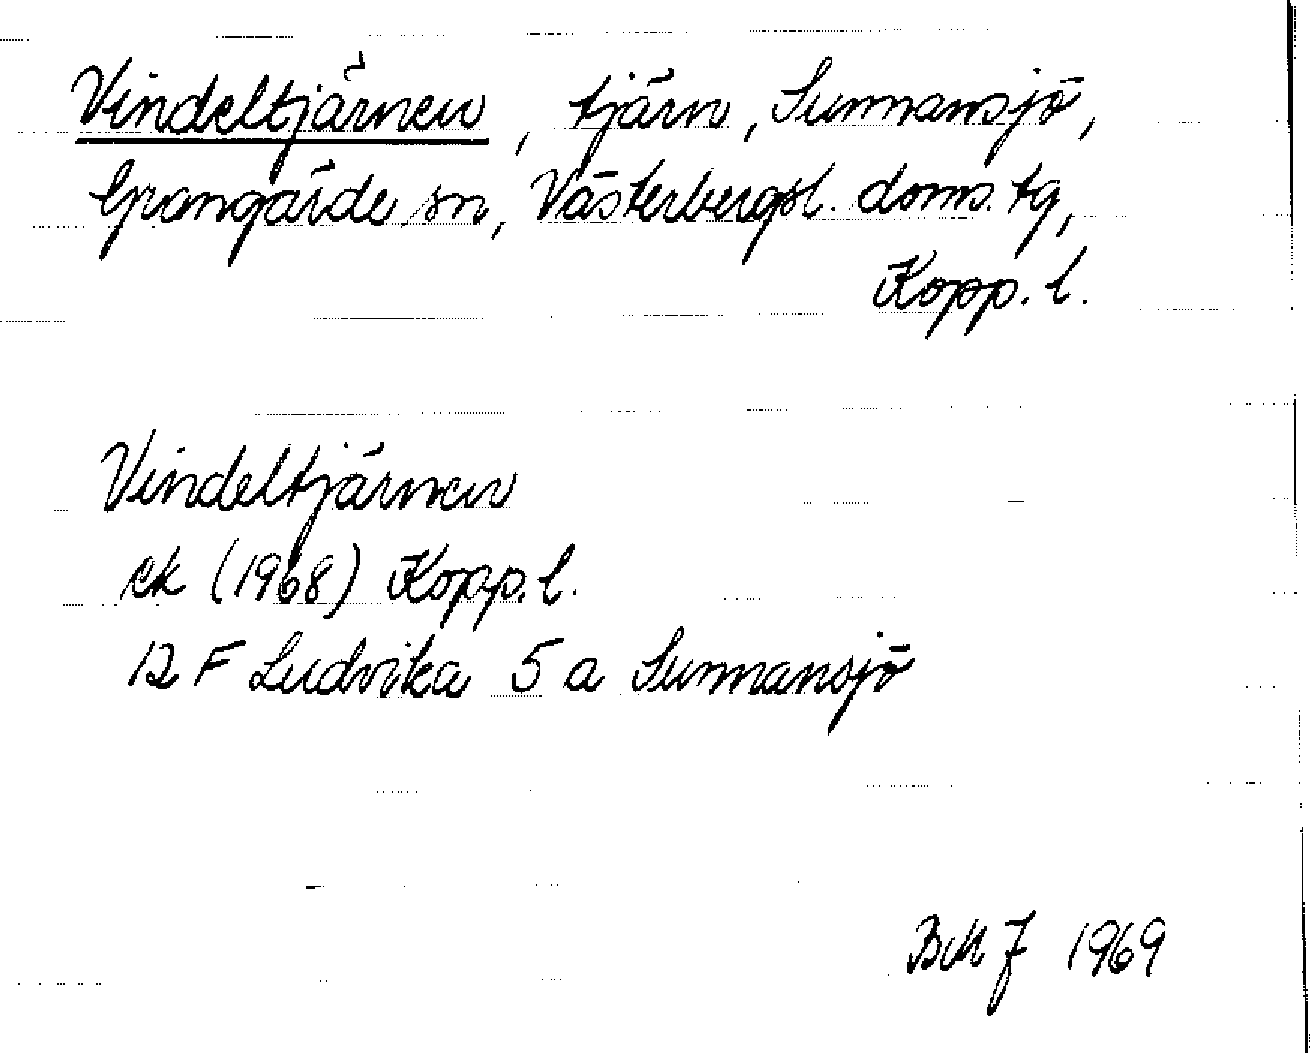 Vindeltjärnen, tjärn, Sunnansjö,
Grangärde sn, Västerbergsl. doms. tg,
Kopp. l.
Vindeltjärnen
ek (1968) Kopp. l.
12 F Ludvika 5 a Sunnansjö
BMJ 1969